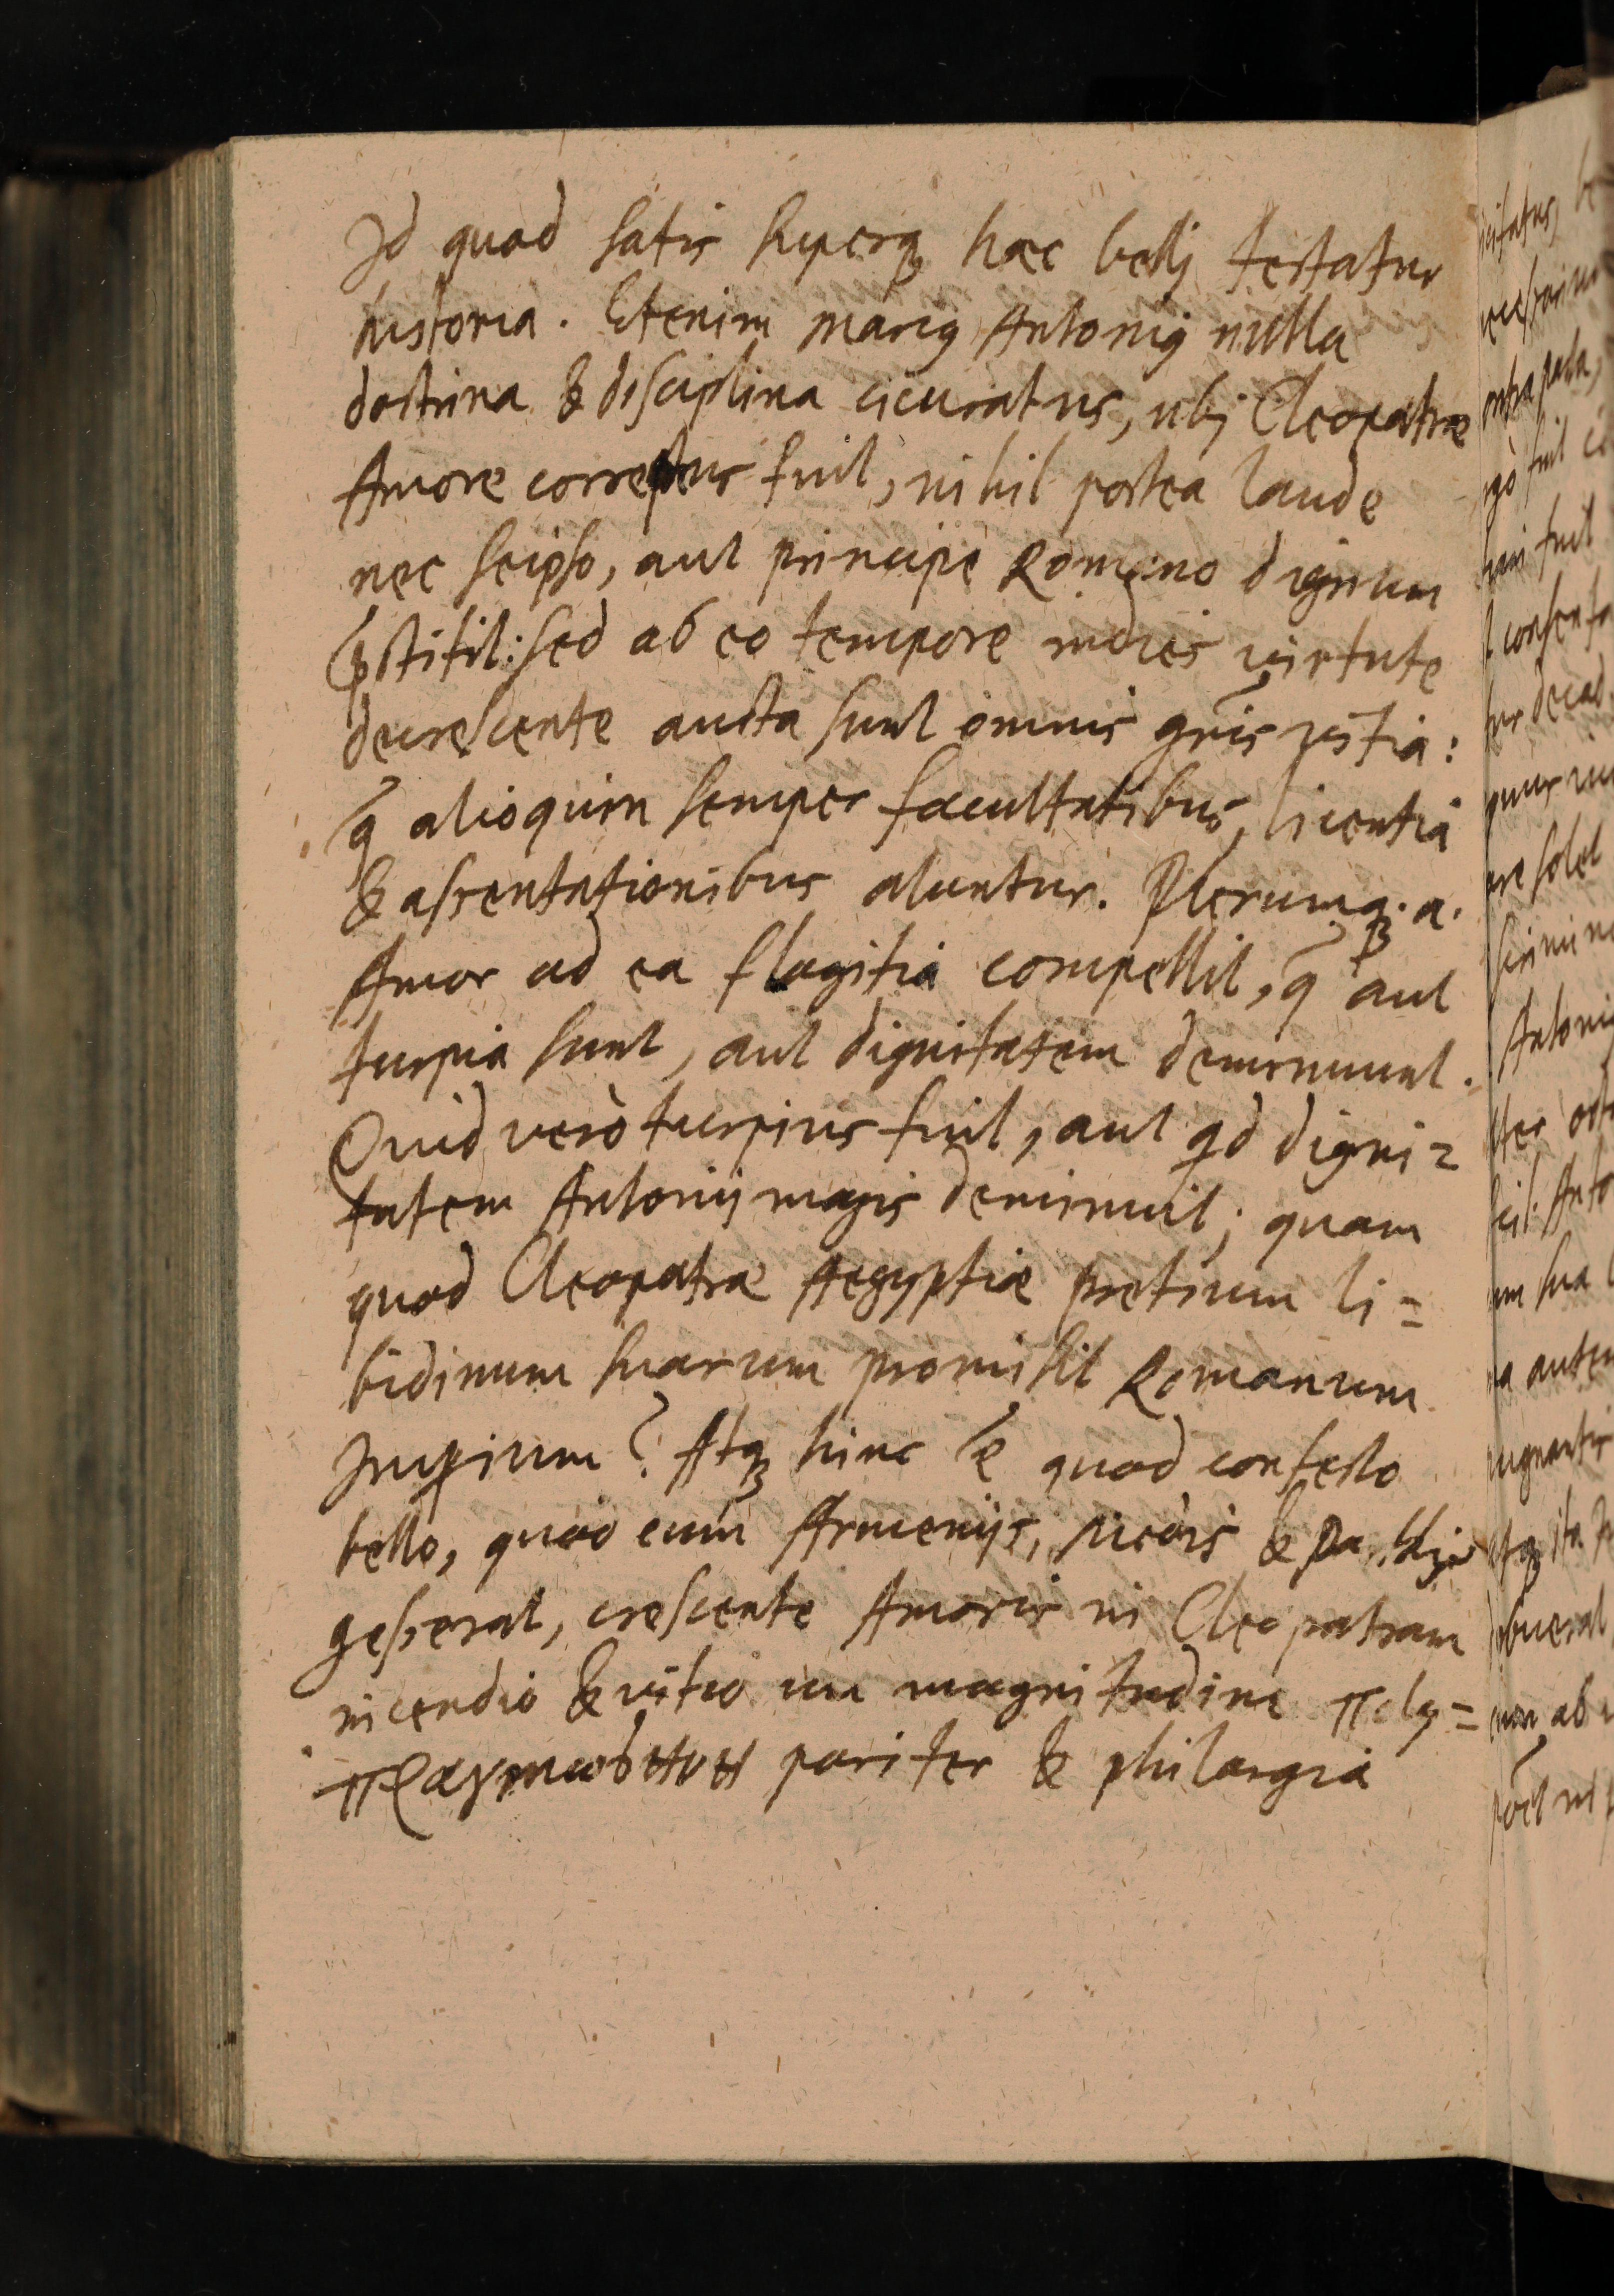 Id quod satis superq; hæc bellj testatur
historia. Etenim Marcꝰ Antoniꝰ nulla
doctrina & disciplina cicuratus, ubj Cleopatræ
Amore correptus fuit, nihil postea laude
nec seipso, aut principe Romano dignum
p̃stitit: sed ab eo tempore indies virtute
decrescente aucta sunt omnis gñis vitia:
q̃ alioquin semper facultatibus, licentia
& assentationibus aluntur. Plerumq;. a.
Amor ad ea flagitia compellit, q̃ aut
turpia sunt, aut dignitatem deminuunt.
Quid verò turpius fuit, aut qd digni=
tatem Antonij magis deminuit; quam
quod Cleopatræ Aegyptiæ pretium li=
bidinum suarum promisit Romanum
Imꝑium? Atq; hinc ẽ quod confecto
bello, quod cum Armenijs, Medis & Parthjs
gesserat, crescente Amoris in Cleopatram
incendio & vitiorum magnitudine πολυ=
πραγμοσύνη pariter & philargia